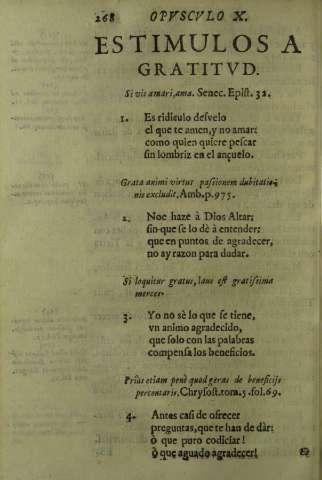 268 OPVSCVLO X.
ESTIMULOS A
GRATITVD.
Si vis amari, ama. Senec. Epist. 32.
1. Es ridiculo desvelo
el que te amen, y no amar:
como quien quiere pescar
sin lombriz en el ançuelo.
Grata animi virtus passionem dubitatio-
nis excludit. Amb. p. 975.
2. Noe haze à Dios Altar:
sin que se lo dè à entender:
que en puntos de agradecer,
no ay razon para dudar.
Si loquitur gratus, laus est gratissima
merces.
3. Yo no sè lo que se tiene,
vn animo agradecido,
que solo con las palabras
compensa los beneficios.
Prius etiam penè quod geras de beneficijs
percontaris. Chrysost. tom. 5. fol. 69.
4. Antes casi de ofrecer
preguntas, que te han de dàr:
ò que puro codiciar!
ò que aguado agradecer!